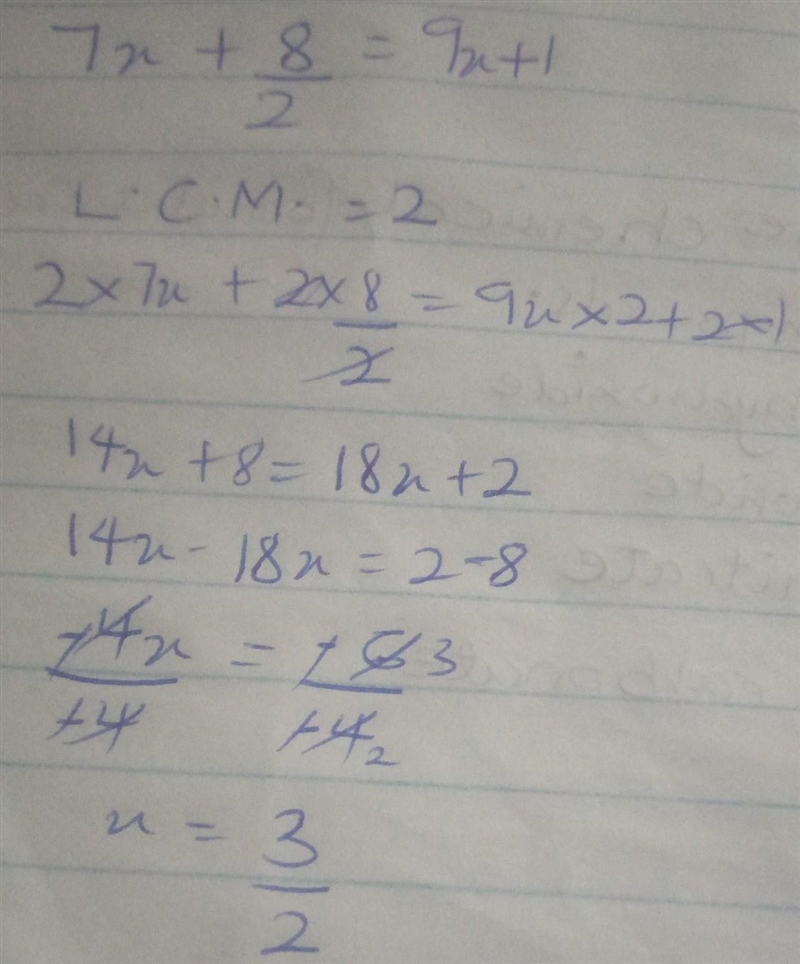 7x + 8/2 = 9x+1
L.C.M. = 2
2×7x + 2×8/2 = 9x×2+2×1
14x +8= 18x+2
14x - 18x = 2-8
-4x/-4 = -6 3/-4 2
x = 3/2